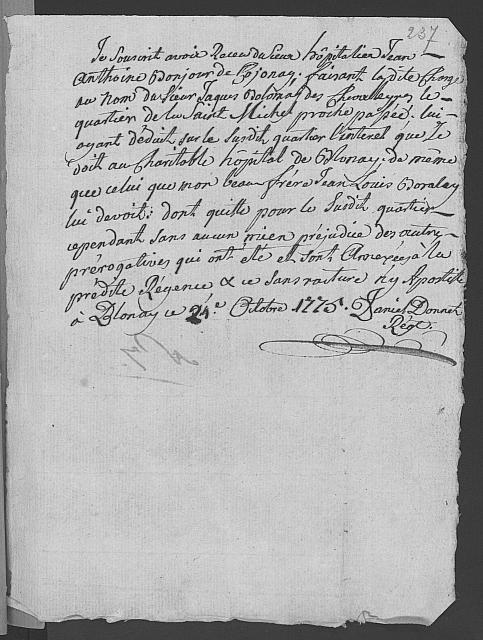 237.
Je Souscrit avoir Receu du Sieur hôpitalier Jean
Anthoine Bonjour de Cojonay, faisant la dite Charge
au nom du Sieur Jaques Bolomey des Chevalleyres, le
quartier de la Saint Michel proche passée. lui
ayant déduit, sur le Susdit quartier l'interet que je
doit au Charitable hôpital de Blonay; de même
que celui que mon beau frère Jean Louis
lui devoit; dont quitte pour le Susdit quartier
cependant sans aucun mien préjudice des autres
prérogatives qui ont été et sont Annexées à la
prédite Régence & ce sans rature ny Apostille
à Blonay ce 24.e Octobre 1775. Daniel Donnet
Régt.